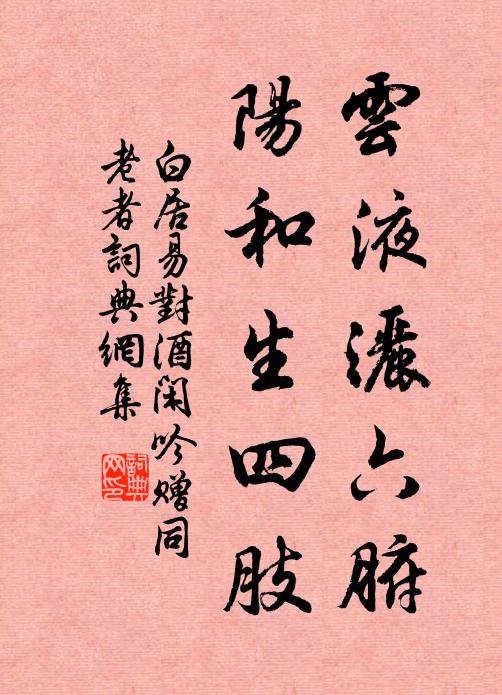 雲液灑六腑
陽和生四肢
白居易對酒閑吟贈同
老者詞典網集
詞典
网印